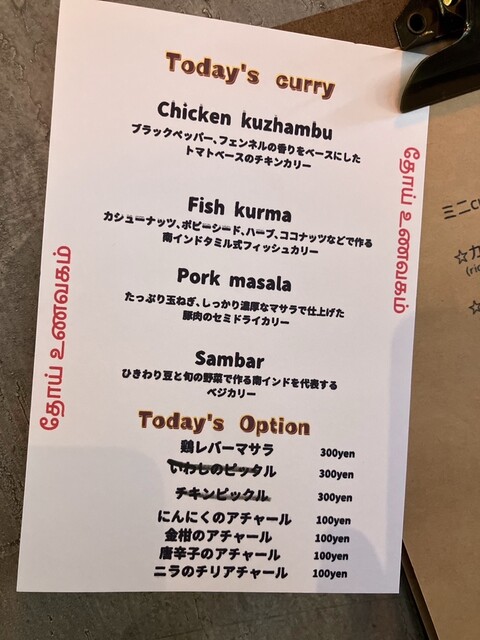 Today's curry
Chicken kuzhambu
ブラックペッパー、フェンネルの香りをベースにした
トマトベースのチキンカリー
Fish kurma
カシューナッツ、ポピーシード、ハーブ、ココナッツなどで作る
南インドタミル式フィッシュカリー
Pork masala
たっぷり玉ねぎ、しっかり濃厚なマサラで仕上げた
豚肉のセミドライカリー
Sambar
ひきわり豆と旬の野菜で作る南インドを代表する
ベジカリー
Today's Option
鶏レバーマサラ 300yen
いわしのピッタル 300yen
チキンピックル 300yen
にんにくのアチャール 100yen
金柑のアチャール 100yen
唐辛子のアチャール 100yen
ニラのチリアチャール 100yen
தோய் உணவகம்
தோய் உணவகம்
ミニ
☆カ